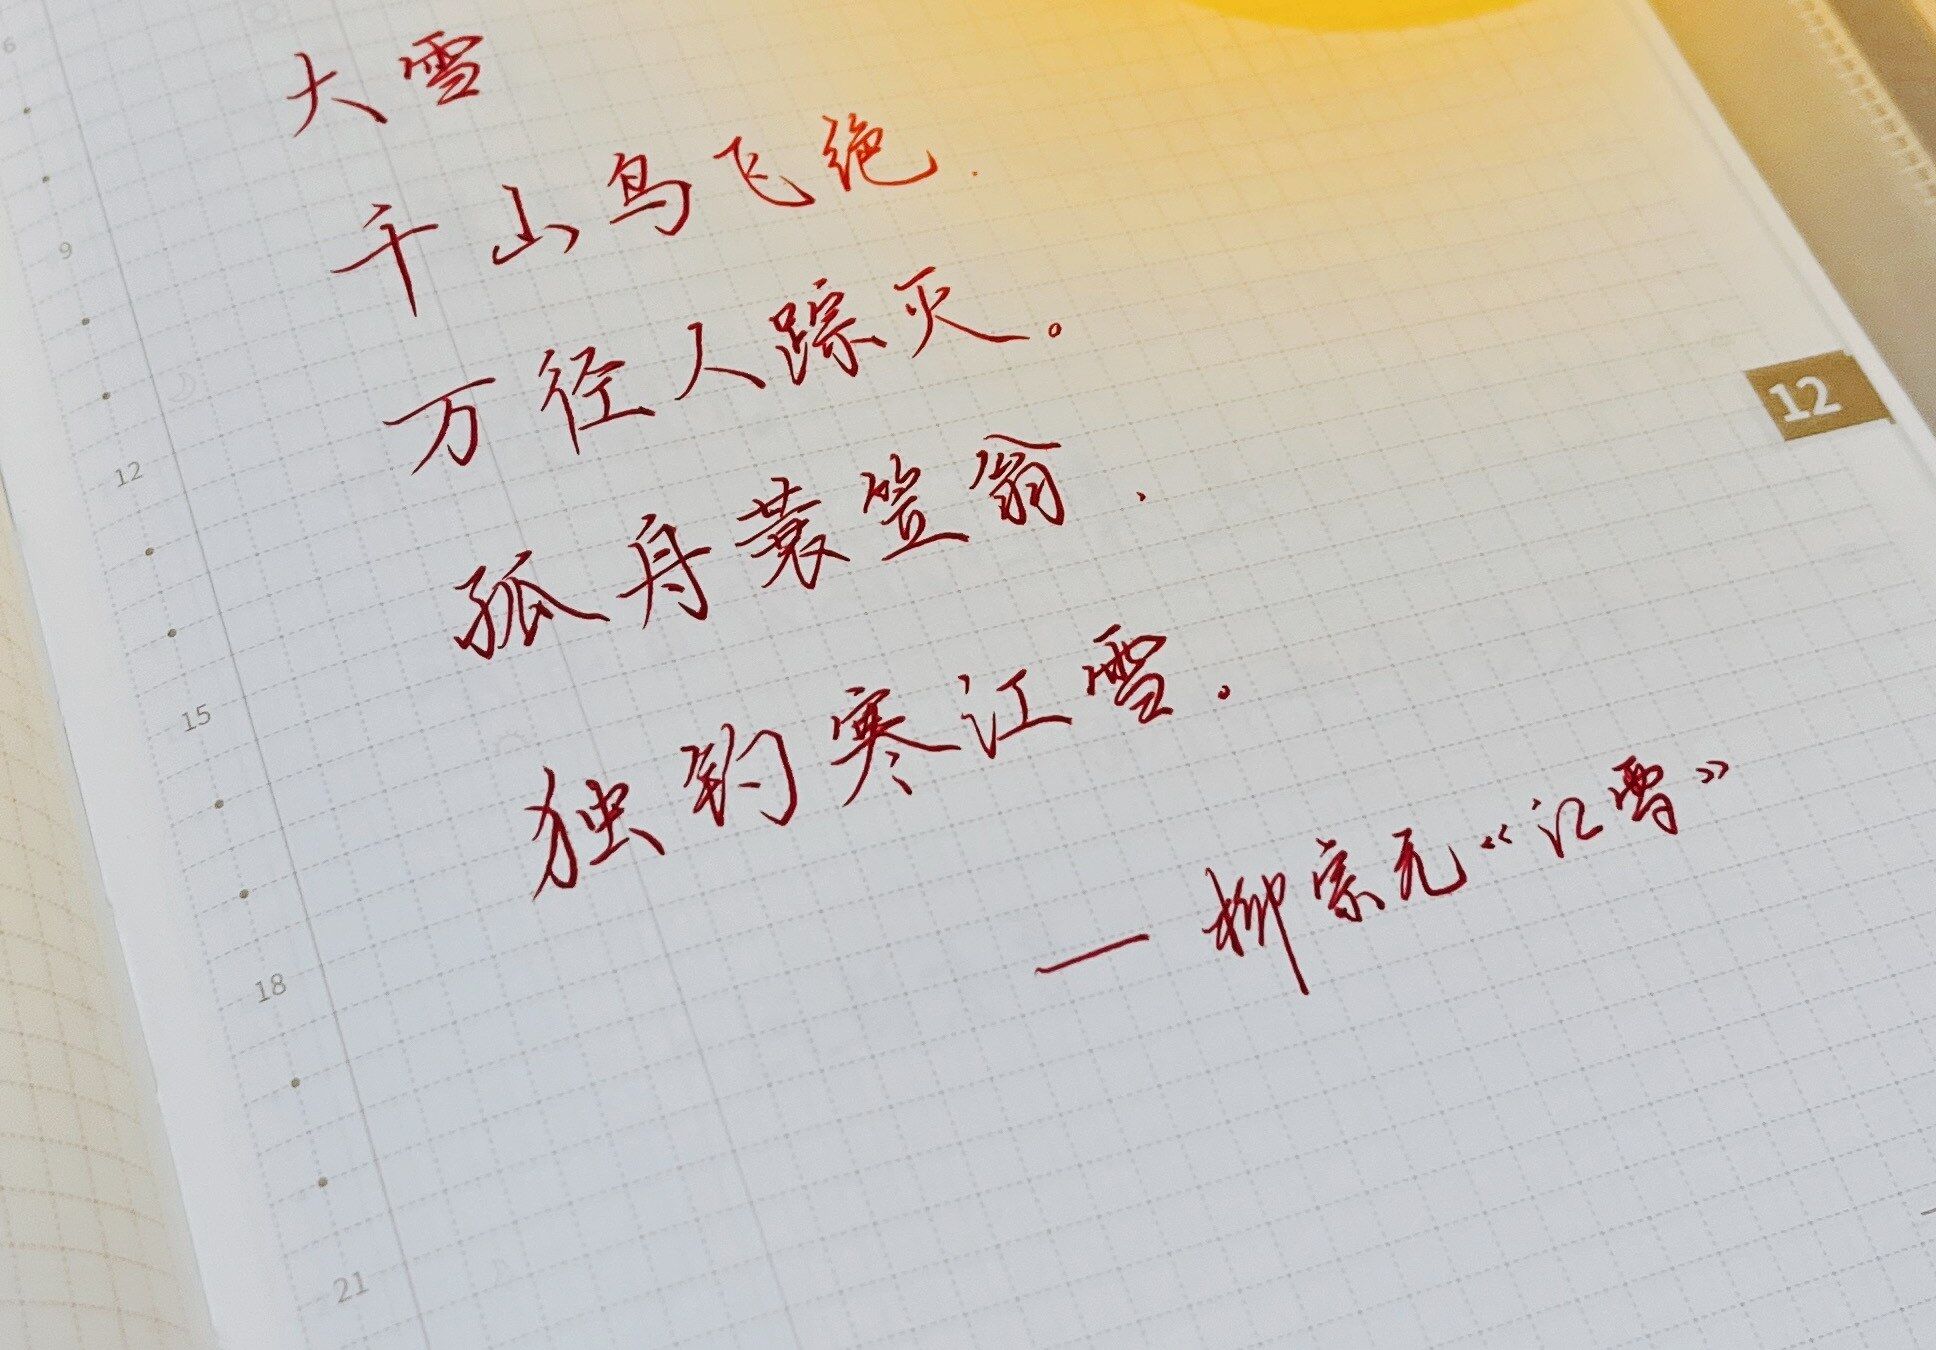 大雪
千山鸟飞绝.
万径人踪灭。
孤舟蓑笠翁.
独钓寒江雪。
—柳宗元《江雪》
12
6
9
12
15
18
21